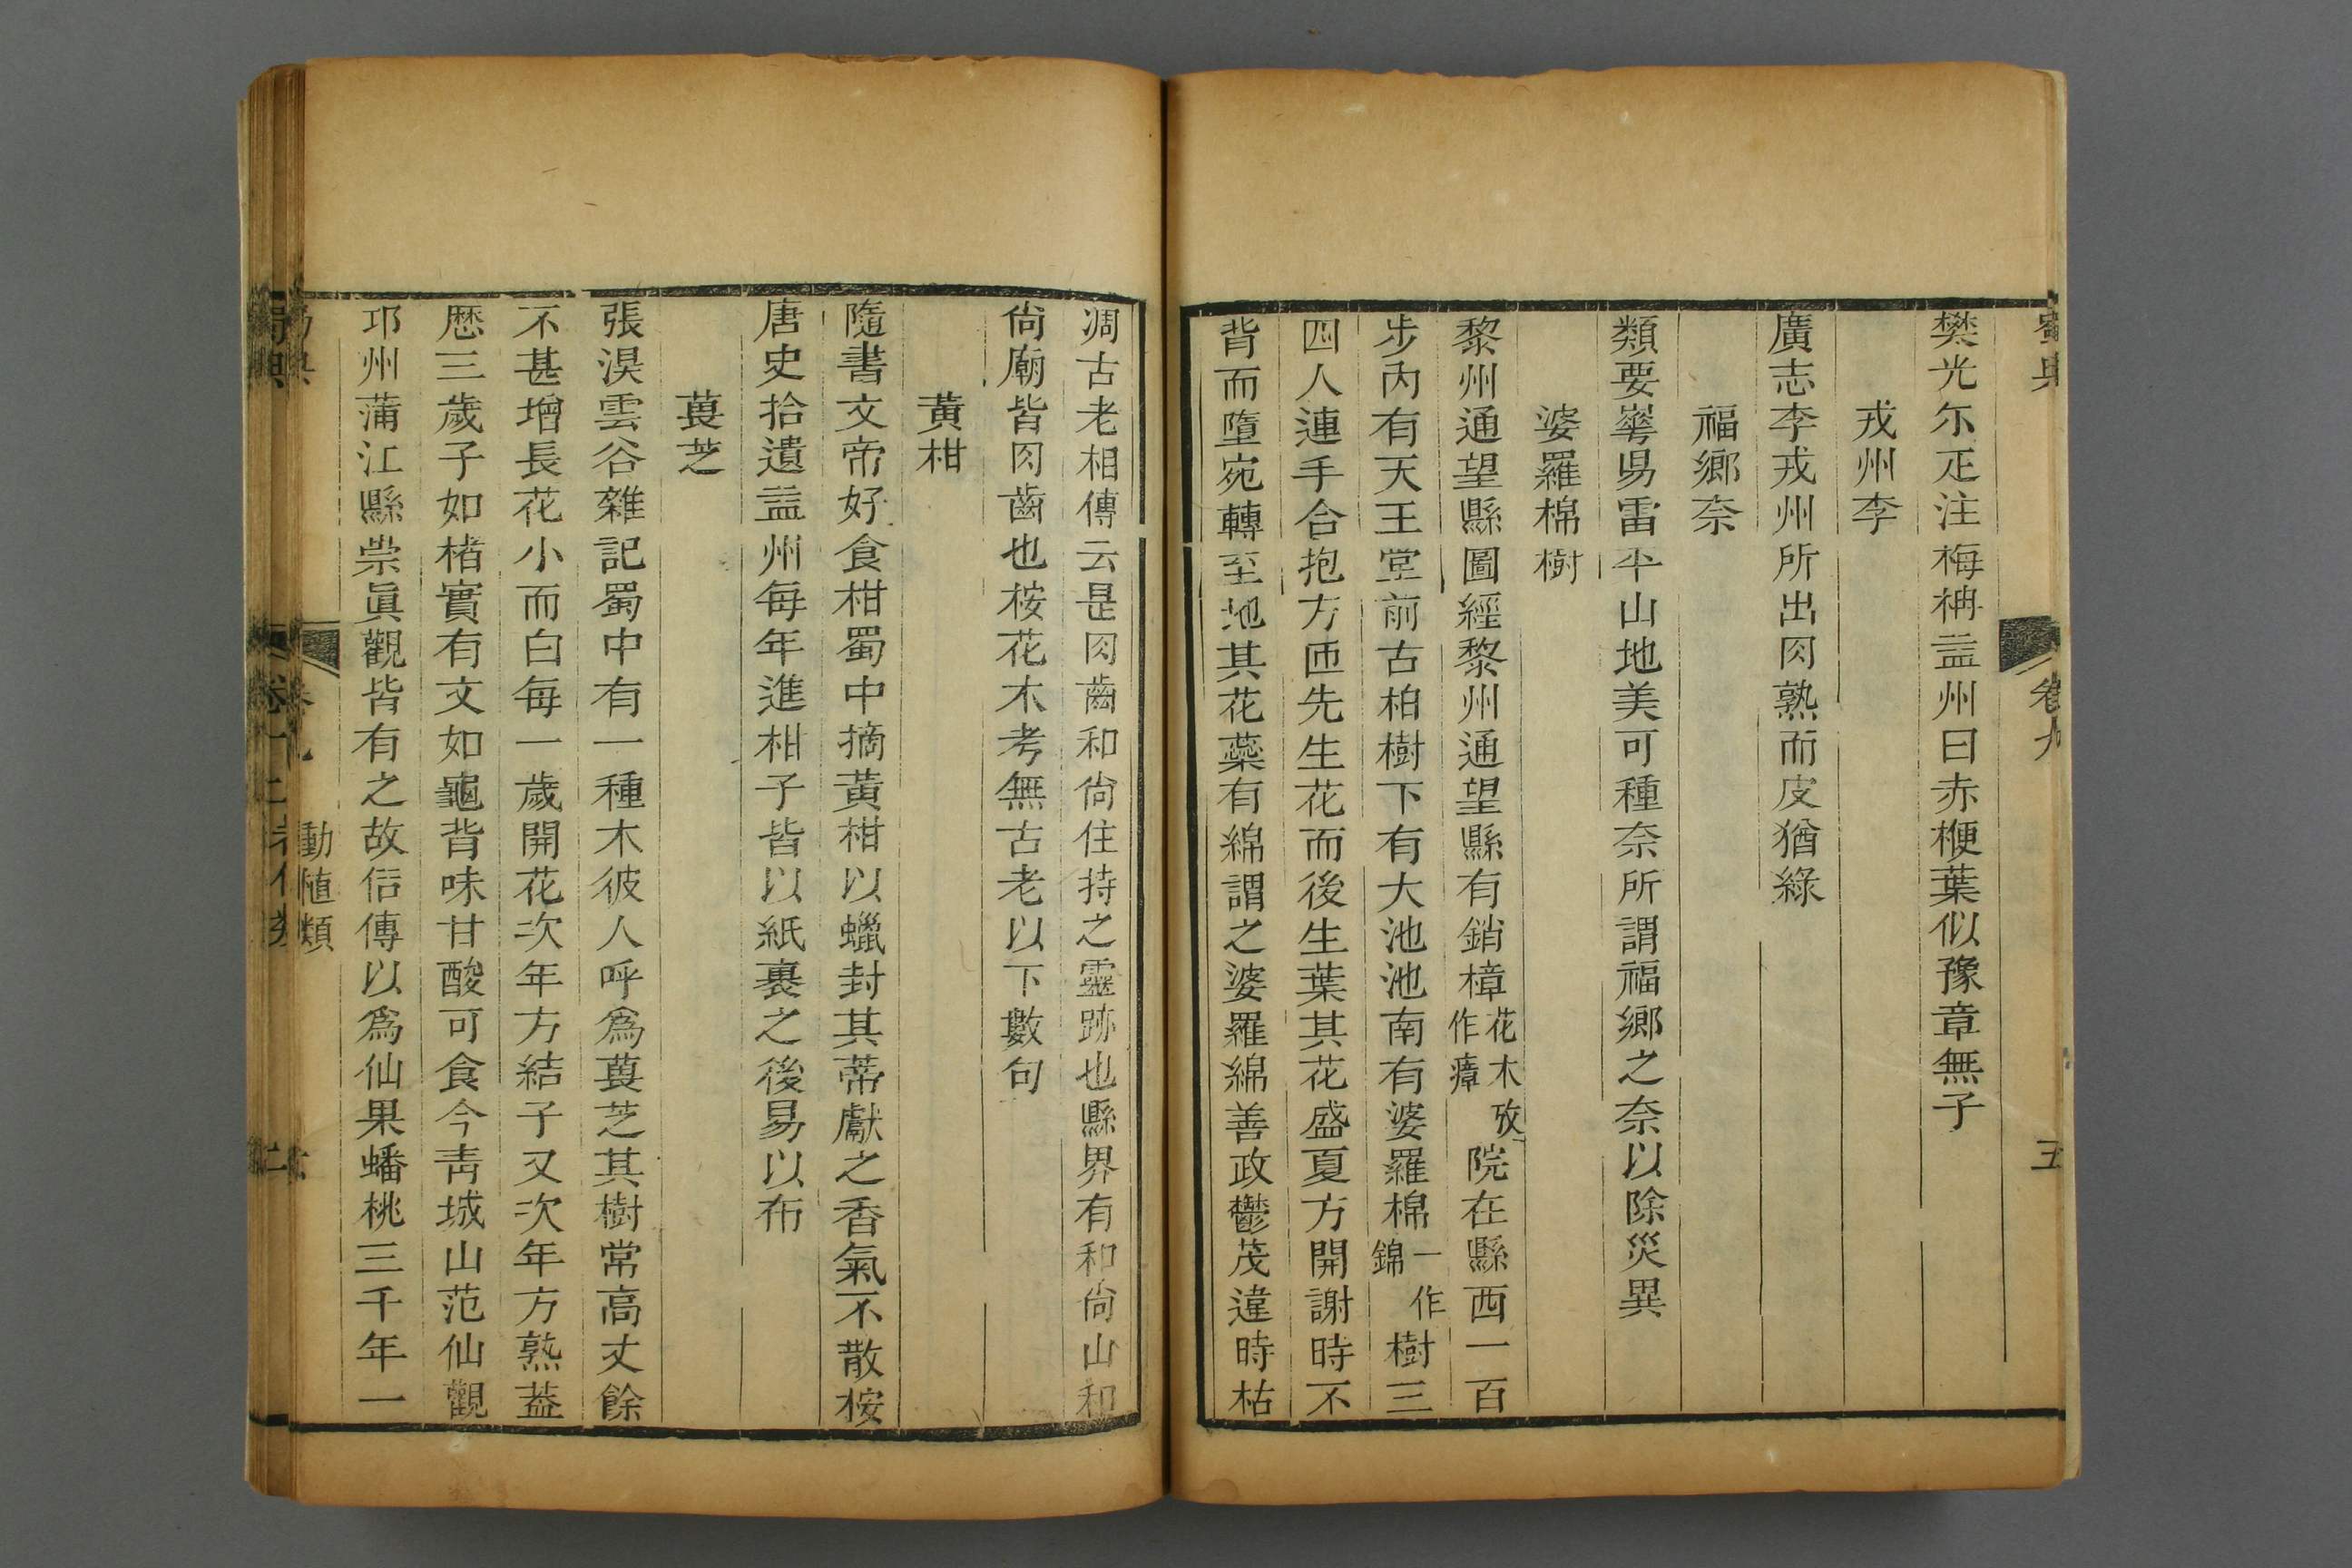 蜀典
卷九
五
樊光尔疋注梅柟益州曰赤楩葉似豫章無子
戎州李
廣志李戎州所出肉熟而皮猶綠
福鄉奈
類要崋昜雷平山地美可種奈所謂福鄉之奈以除災異
婆羅棉樹
黎州通望縣圖經黎州通望縣有銷樟花木攷作瘴院在縣西一百
步內有天王堂前古柏樹下有大池池南有婆羅棉一作錦樹三
四人連手合抱方匝先生花而後生葉其花盛夏方開謝時不
背而墮宛轉至地其花蘂有綿謂之婆羅綿善政鬱茂違時枯
凋古老相傳云是肉齒和尙住持之靈跡也縣界有和尙山和
尙廟皆肉齒也桉花木考無古老以下數句
黃柑
隨書文帝好食柑蜀中摘黃柑以蠟封其蒂獻之香氣不散桉
唐史拾遺益州每年進柑子皆以紙裹之後易以布
萇芝
張淏雲谷雜記蜀中有一種木彼人呼爲萇芝其樹常高丈餘
不甚增長花小而白每一歲開花次年方結子又次年方熟葢
歷三歲子如楮實有文如龜背味甘酸可食今靑城山范仙觀
邛州蒲江縣崇眞觀皆有之故俗傳以爲仙果蟠桃三千年一
動植類